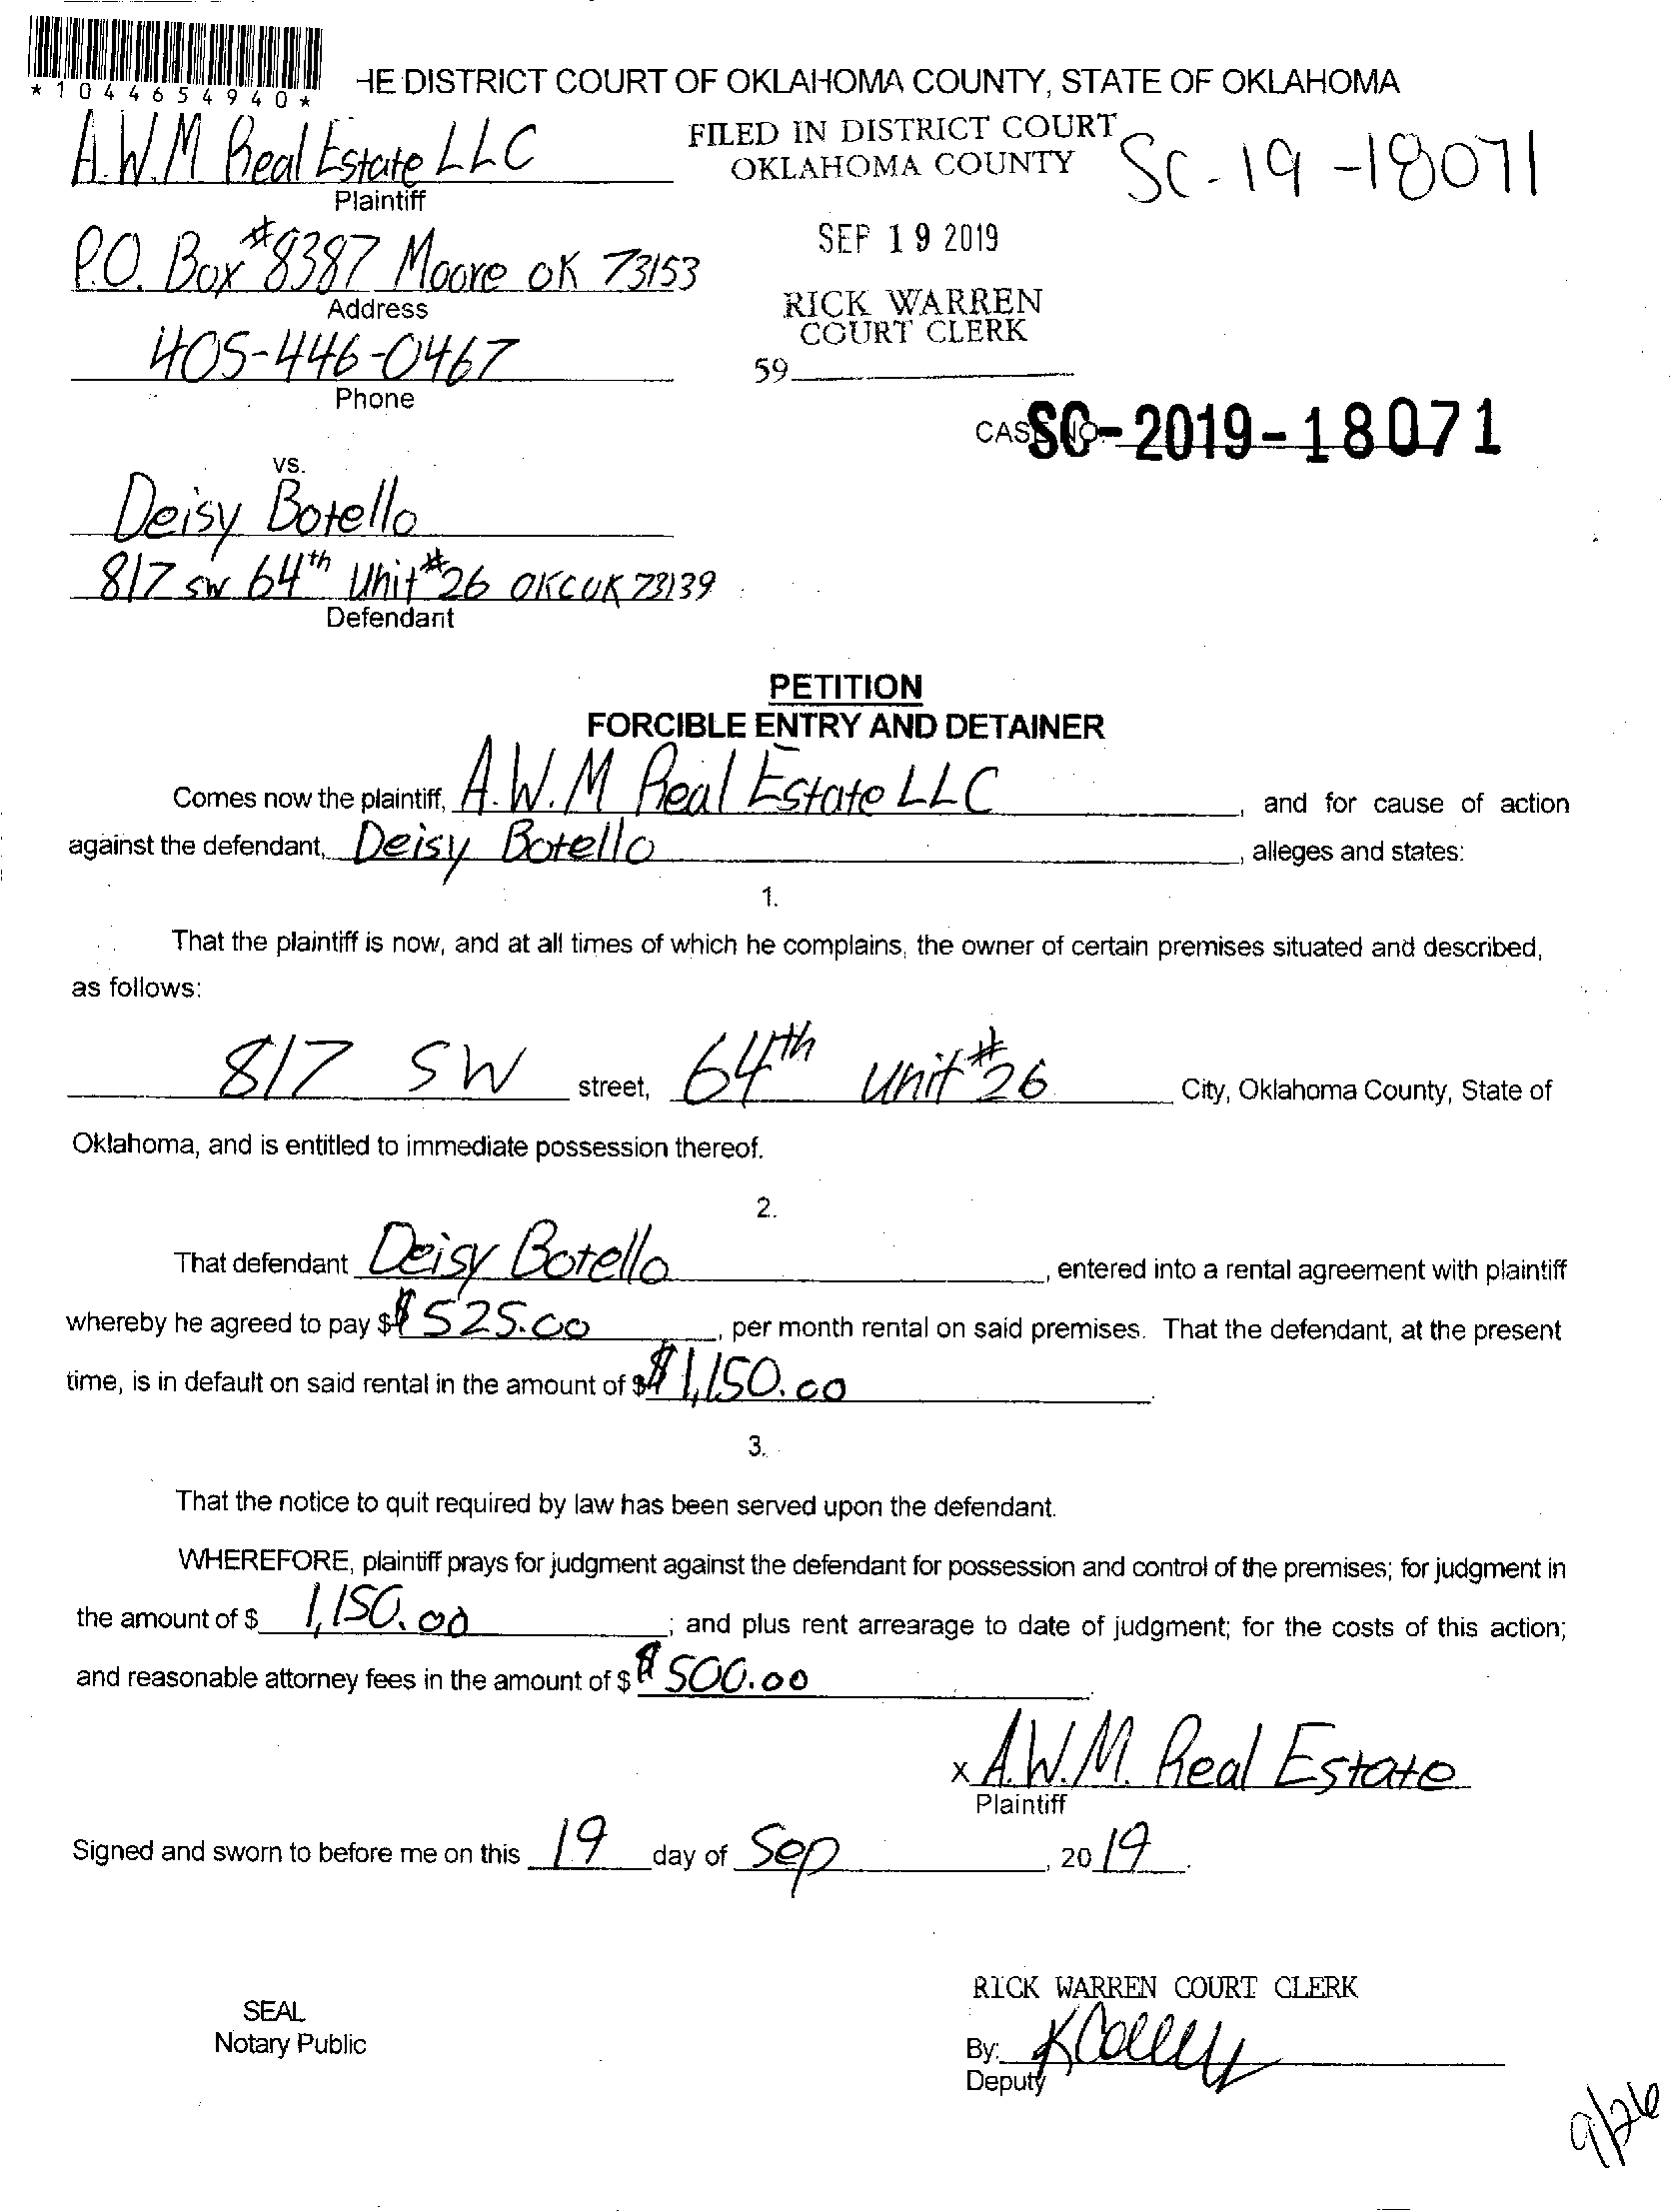 *1044654940*
HE DISTRICT COURT OF OKLAHOMA COUNTY, STATE OF OKLAHOMA
A.W.M Real Estate LLC
Plaintiff
FILED IN DISTRICT COURT
OKLAHOMA COUNTY
SC-19-18071
P.O. Box #8387 Moore OK 73153
Address
SEP 19 2019
405-446-0467
Phone
RICK WARREN
COURT CLERK
59
CASE NO. SC-2019-18071
vs.
Deisy Botello
817 SW 64th Unit #26 OKC OK 73139
Defendant
PETITION
FORCIBLE ENTRY AND DETAINER
Comes now the plaintiff, A.W.M Real Estate LLC, and for cause of action
against the defendant, Deisy Botello, alleges and states:
1.
That the plaintiff is now, and at all times of which he complains, the owner of certain premises situated and described,
as follows:
817 SW street, 64th unit #26 City, Oklahoma County, State of
Oklahoma, and is entitled to immediate possession thereof.
2.
That defendant Deisy Botello, entered into a rental agreement with plaintiff
whereby he agreed to pay $ $525.00, per month rental on said premises. That the defendant, at the present
time, is in default on said rental in the amount of $ $1,150.00.
3.
That the notice to quit required by law has been served upon the defendant.
WHEREFORE, plaintiff prays for judgment against the defendant for possession and control of the premises; for judgment in
the amount of $ 1,150.00; and plus rent arrearage to date of judgment; for the costs of this action;
and reasonable attorney fees in the amount of $ $500.00.
x A.W.M. Real Estate
Plaintiff
Signed and sworn to before me on this 19 day of Sep, 2019.
RICK WARREN COURT CLERK
SEAL
Notary Public
By:
Deputy
9/26